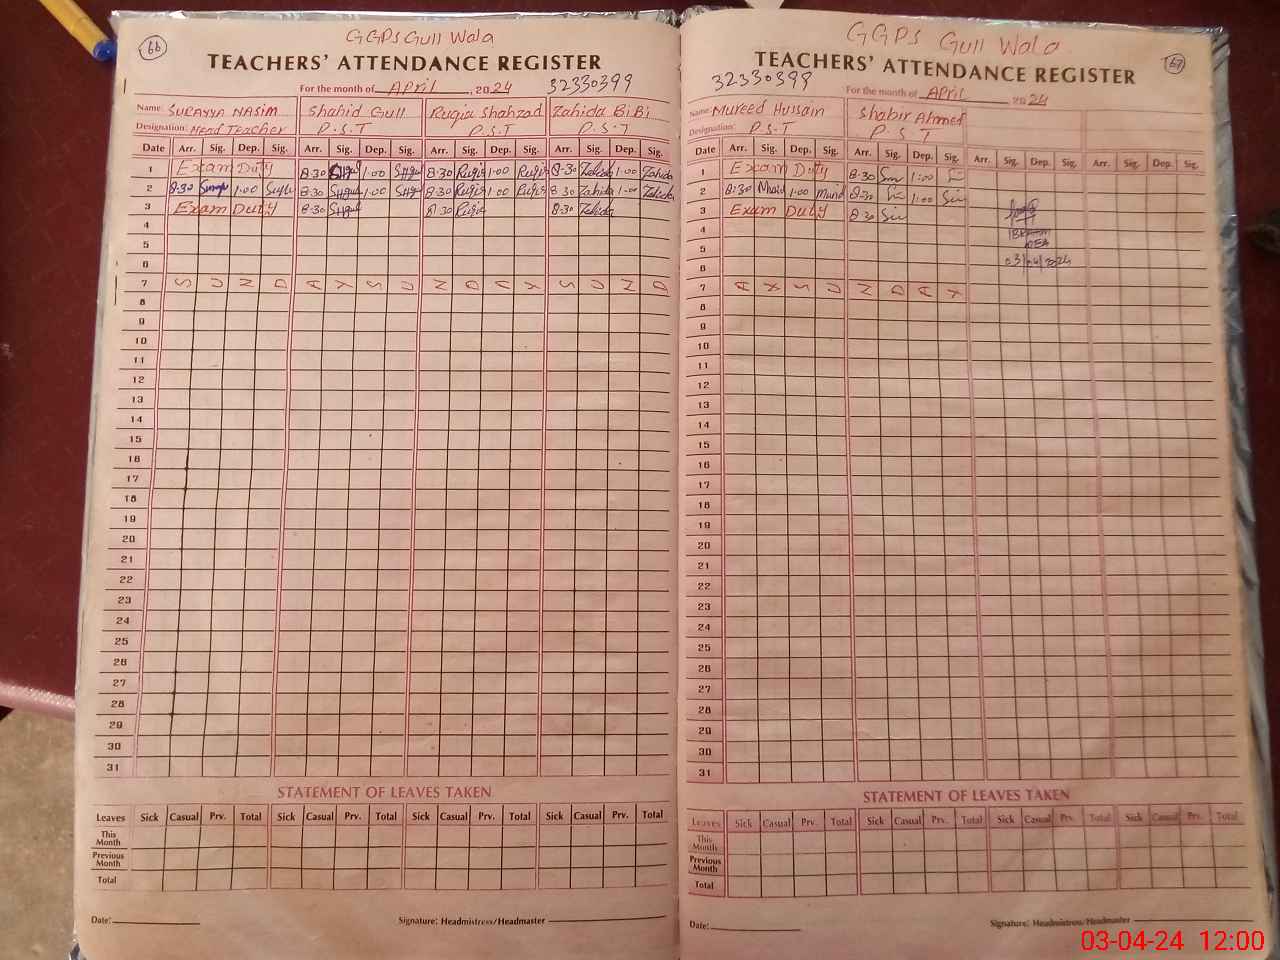 66
GGPS Gull Wala
TEACHERS' ATTENDANCE REGISTER
For the month of April, 2024 32330399
Name: Surayya Nasim Shahid Gull Ruqia Shahzad Zahida BiBi
Designation: Head Teacher P.S.T P.S.T P.S.T
Date Arr. Sig. Dep. Sig. Arr. Sig. Dep. Sig. Arr. Sig. Dep. Sig. Arr. Sig. Dep. Sig.
1 Exam Duty 8-30 1:00 8-30 Ruqia 1:00 Ruqia 8-30 Zahida 1-00 Zahida
2 8:30 1:00 8-30 1:00 8-30 Ruqia 1:00 Ruqia 8-30 Zahida 1-00 Zahida
3 Exam Duty 8-30 8-30 Ruqia 8-30 Zahida
4
5
6
7 S U N D A Y S U N D A Y S U N D
8
9
10
11
12
13
14
15
16
17
18
19
20
21
22
23
24
25
26
27
28
29
30
31
STATEMENT OF LEAVES TAKEN
Leaves Sick Casual Prv. Total Sick Casual Prv. Total Sick Casual Prv. Total Sick Casual Prv. Total
This Month
Previous Month
Total
Date: Signature: Headmistress/Headmaster
GGPS Gull Wala
67
TEACHERS' ATTENDANCE REGISTER
32330399 For the month of April 2024
Name: Mureed Hussain Shabir Ahmed
Designation: P.S.T P.S.T
Date Arr. Sig. Dep. Sig. Arr. Sig. Dep. Sig. Arr. Sig. Dep. Sig. Arr. Sig. Dep. Sig.
1 Exam Duty 8-30 1:00
2 8:30 1:00 8-30 1:00
3 Exam Duty 8-30
4
5
6 03/04/2024
7 A Y S U N D A Y
8
9
10
11
12
13
14
15
16
17
18
19
20
21
22
23
24
25
26
27
28
29
30
31
STATEMENT OF LEAVES TAKEN
Leaves Sick Casual Prv. Total Sick Casual Prv. Total Sick Casual Prv. Total Sick Casual Prv. Total
This Month
Previous Month
Total
Date: Signature: Headmistress/Headmaster
03-04-24 12:00